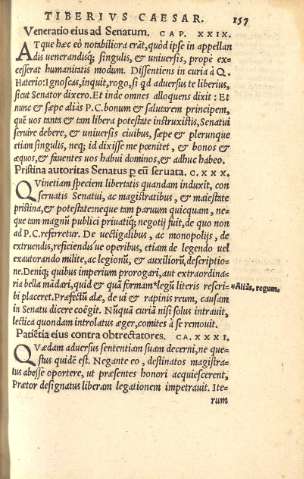 TIBERIVS CAESAR. 157
Veneratio eius ad Senatum. CAP. XXIX.
ATque hæc eò notabiliora erāt, quòd ipse in appellan
dis venerandisq; singulis, & uniuersis, propè ex=
cesserat humanitatis modum. Dissentiens in curia à Q.
Haterio: Ignoscas, inquit, rogo, si qd aduersus te liberius,
sicut Senator dixero. Et inde omnes alloquens dixit: Et
nunc & sæpe aliàs P.C. bonum & salutarem principem,
quē uos tanta & tam libera potestate instruxistis, Senatui
seruire debere, & uniuersis ciuibus, sæpe & plerunque
etiam singulis, neq; id dixisse me pœnitet, & bonos &
æquos, & fauentes uos habui dominos, & adhuc habeo.
Pristina autoritas Senatus p eū seruata. C. XXX.
QVinetiam speciem libertatis quandam induxit, con
seruatis Senatui, ac magistratibus, & maiestate
pristina, & potestate: neque tam paruum quicquam, ne=
que tam magnū publici priuatiq; negotij fuit, de quo non
ad P.C. referretur. De uectigalibus, ac monopolijs, de
extruendis, reficiendis'ue operibus, etiam de legendo uel
exautorando milite, ac legionū, & auxiliorū descriptio=
ne. Deniq; quibus imperium prorogari, aut extraordina=
ria bella mādari, quid & quā formam legū literis rescri=
bi placeret. Præfectū alæ, de ui & rapinis reum, causam
in Senatu dicere coëgit. Nūquā curiā nisi solus intrauit,
lectica quondam introlatus æger, comites à se remouit.
Patiētia eius contra obtrectatores. CA. XXXI.
QVædam aduersus sententiam suam decerni, ne que=
stus quidē est. Negante eo, destinatos magistra=
tus abesse oportere, ut præsentes honori acquiescerent,
Prætor designatus liberam legationem impetrauit. Ite=
rum
regum.